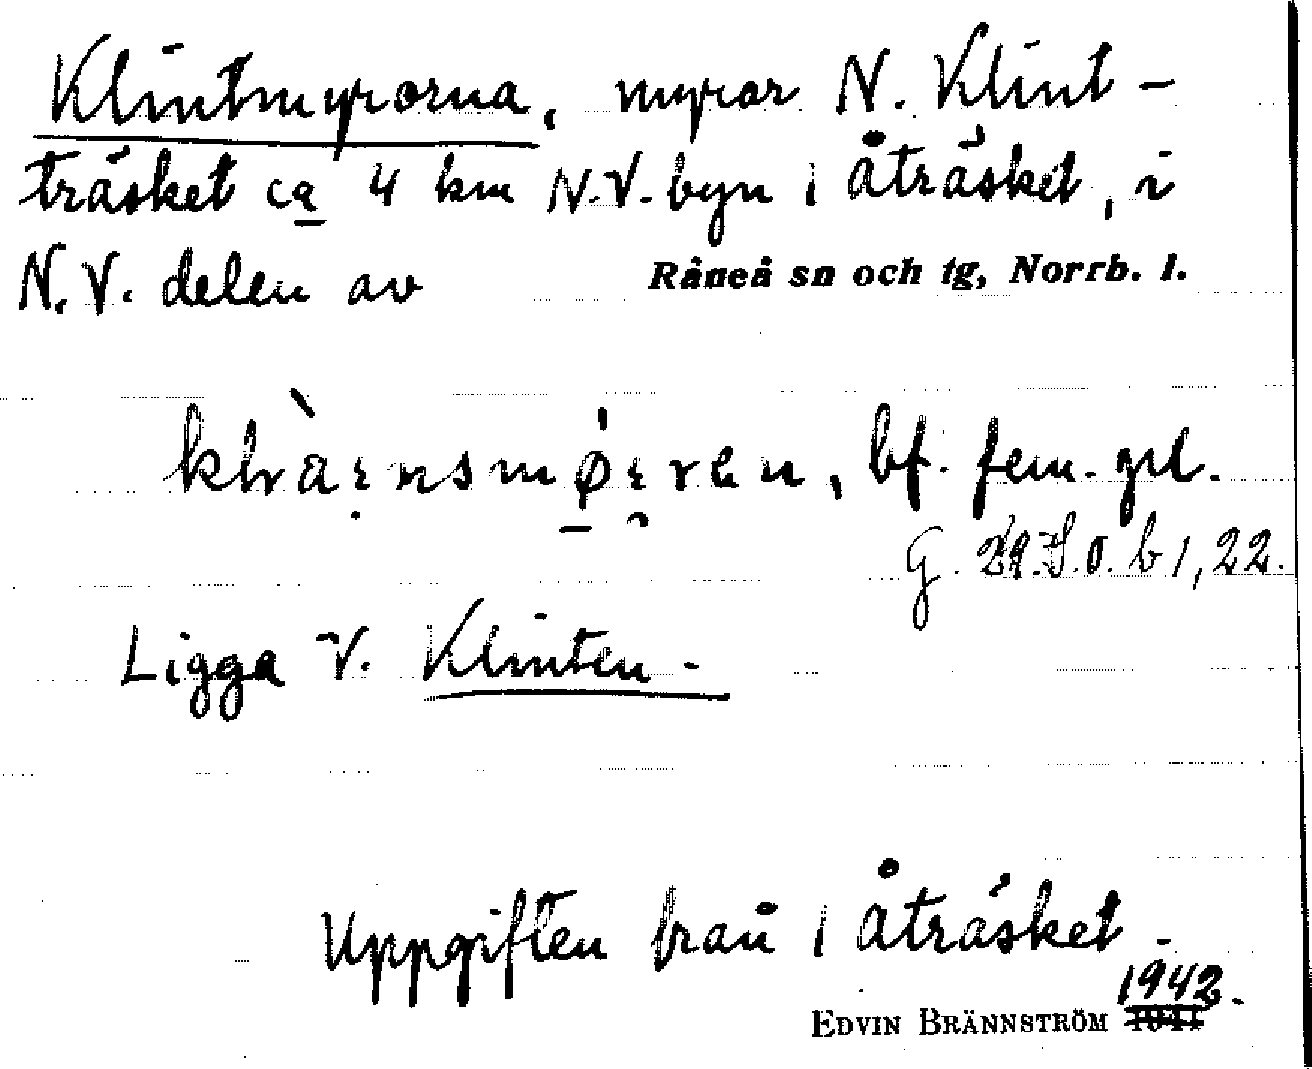 Klintmyrorna, myrar N. Klint-
träsket ca 4 km N.V. byn i Åträsket, i
N.V. delen av Råneå sn och tg, Norrb. l.
bf. fem. pl.
b 1, 22.
Ligga V. Klinten.
Uppgiften från i Åträsket.
1942.
EDVIN BRÄNNSTRÖM 1941